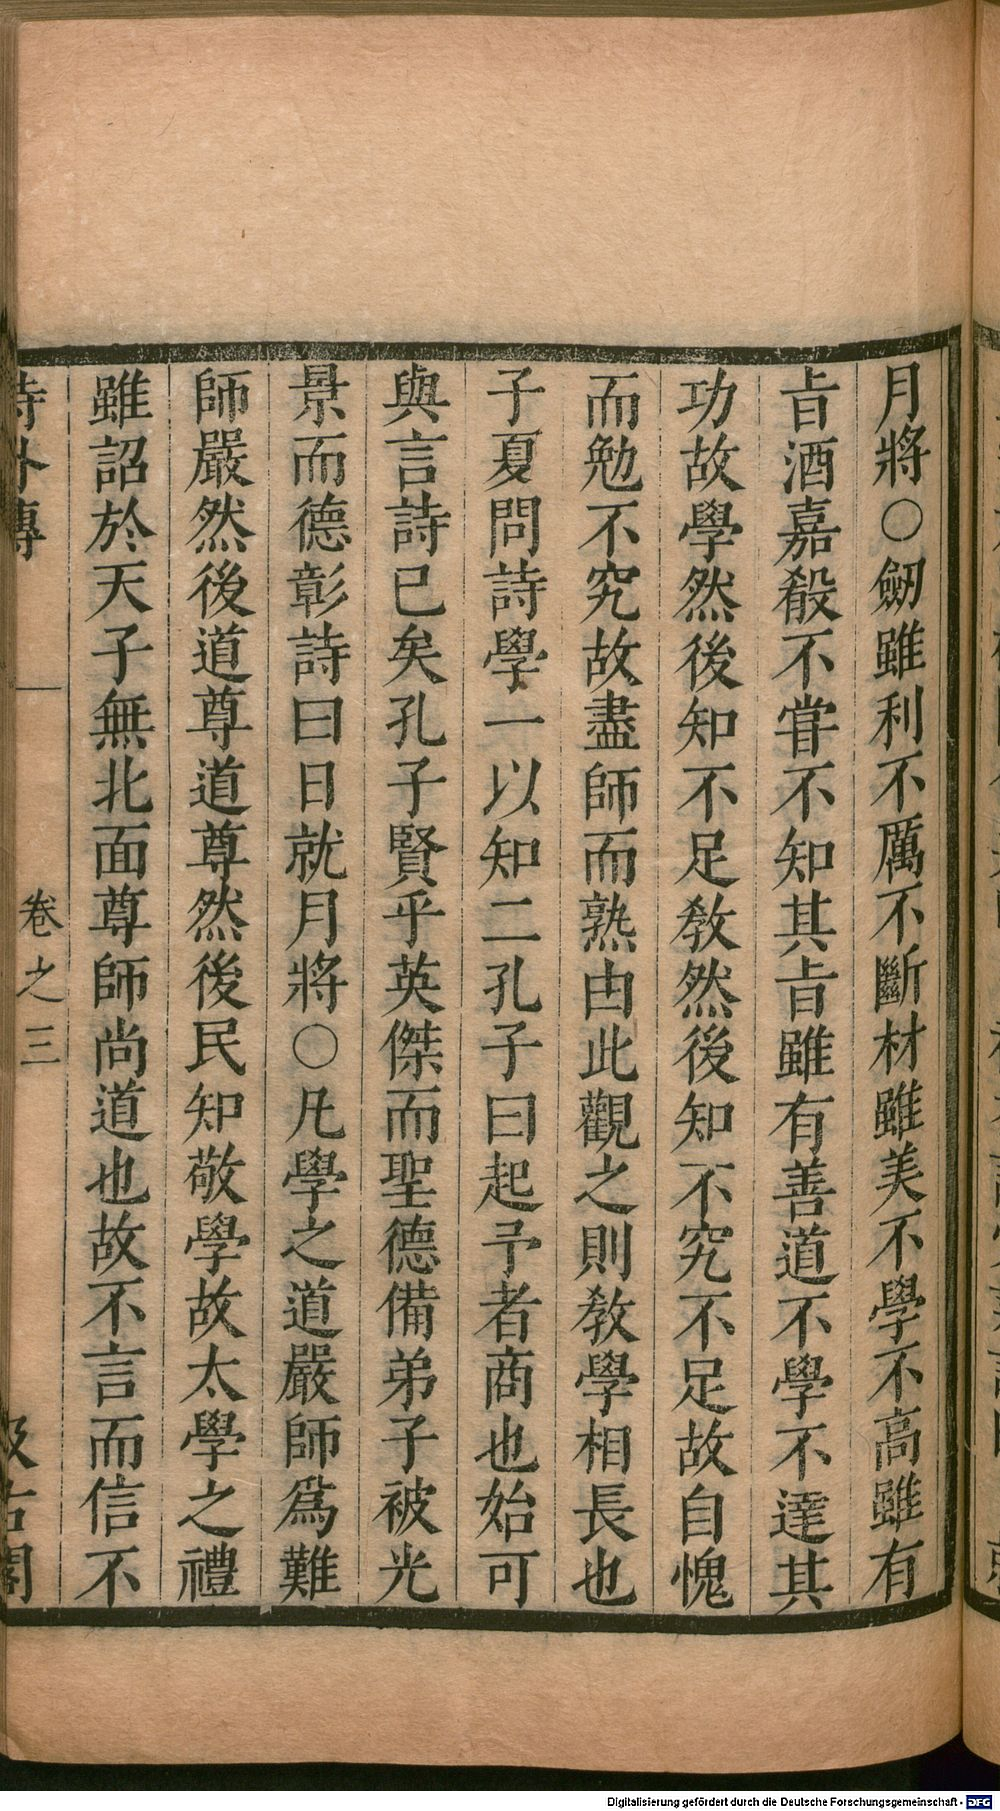 月將○劒雖利不厲不斷材雖美不學不高雖有
㫖酒嘉殽不甞不知其㫖雖有善道不學不達其
功故學然後知不足敎然後知不究不足故自愧
而勉不究故盡師而熟由此觀之則敎學相長也
子夏問詩學一以知二孔子曰起予者商也始可
與言詩已矣孔子賢乎英傑而聖德備弟子被光
景而德彰詩曰日就月將○凡學之道嚴師爲難
師嚴然後道尊道尊然後民知敬學故太學之禮
雖詔於天子無北面尊師尚道也故不言而信不
詩外傳 卷之三 汲古閣
Digitalisierung gefördert durch die Deutsche Forschungsgemeinschaft - DFG